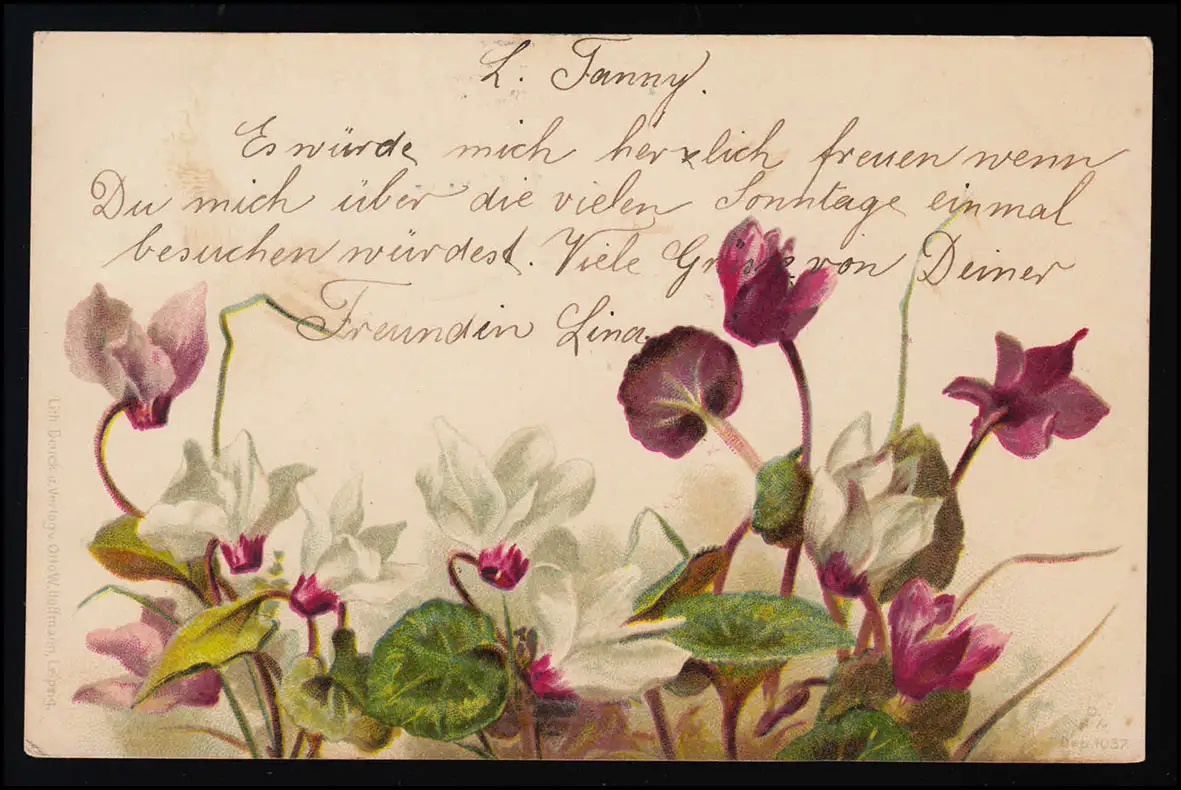 L. Fanny.
Es würde mich herzlich freuen wenn
Du mich über die vielen Sonntage einmal
besuchen würdest. Viele Grüße von Deiner
Freundin Lina.
Lith. Druck u. Verlag v. Otto W. Hoffmann, Leipzig.
Dep. 1037